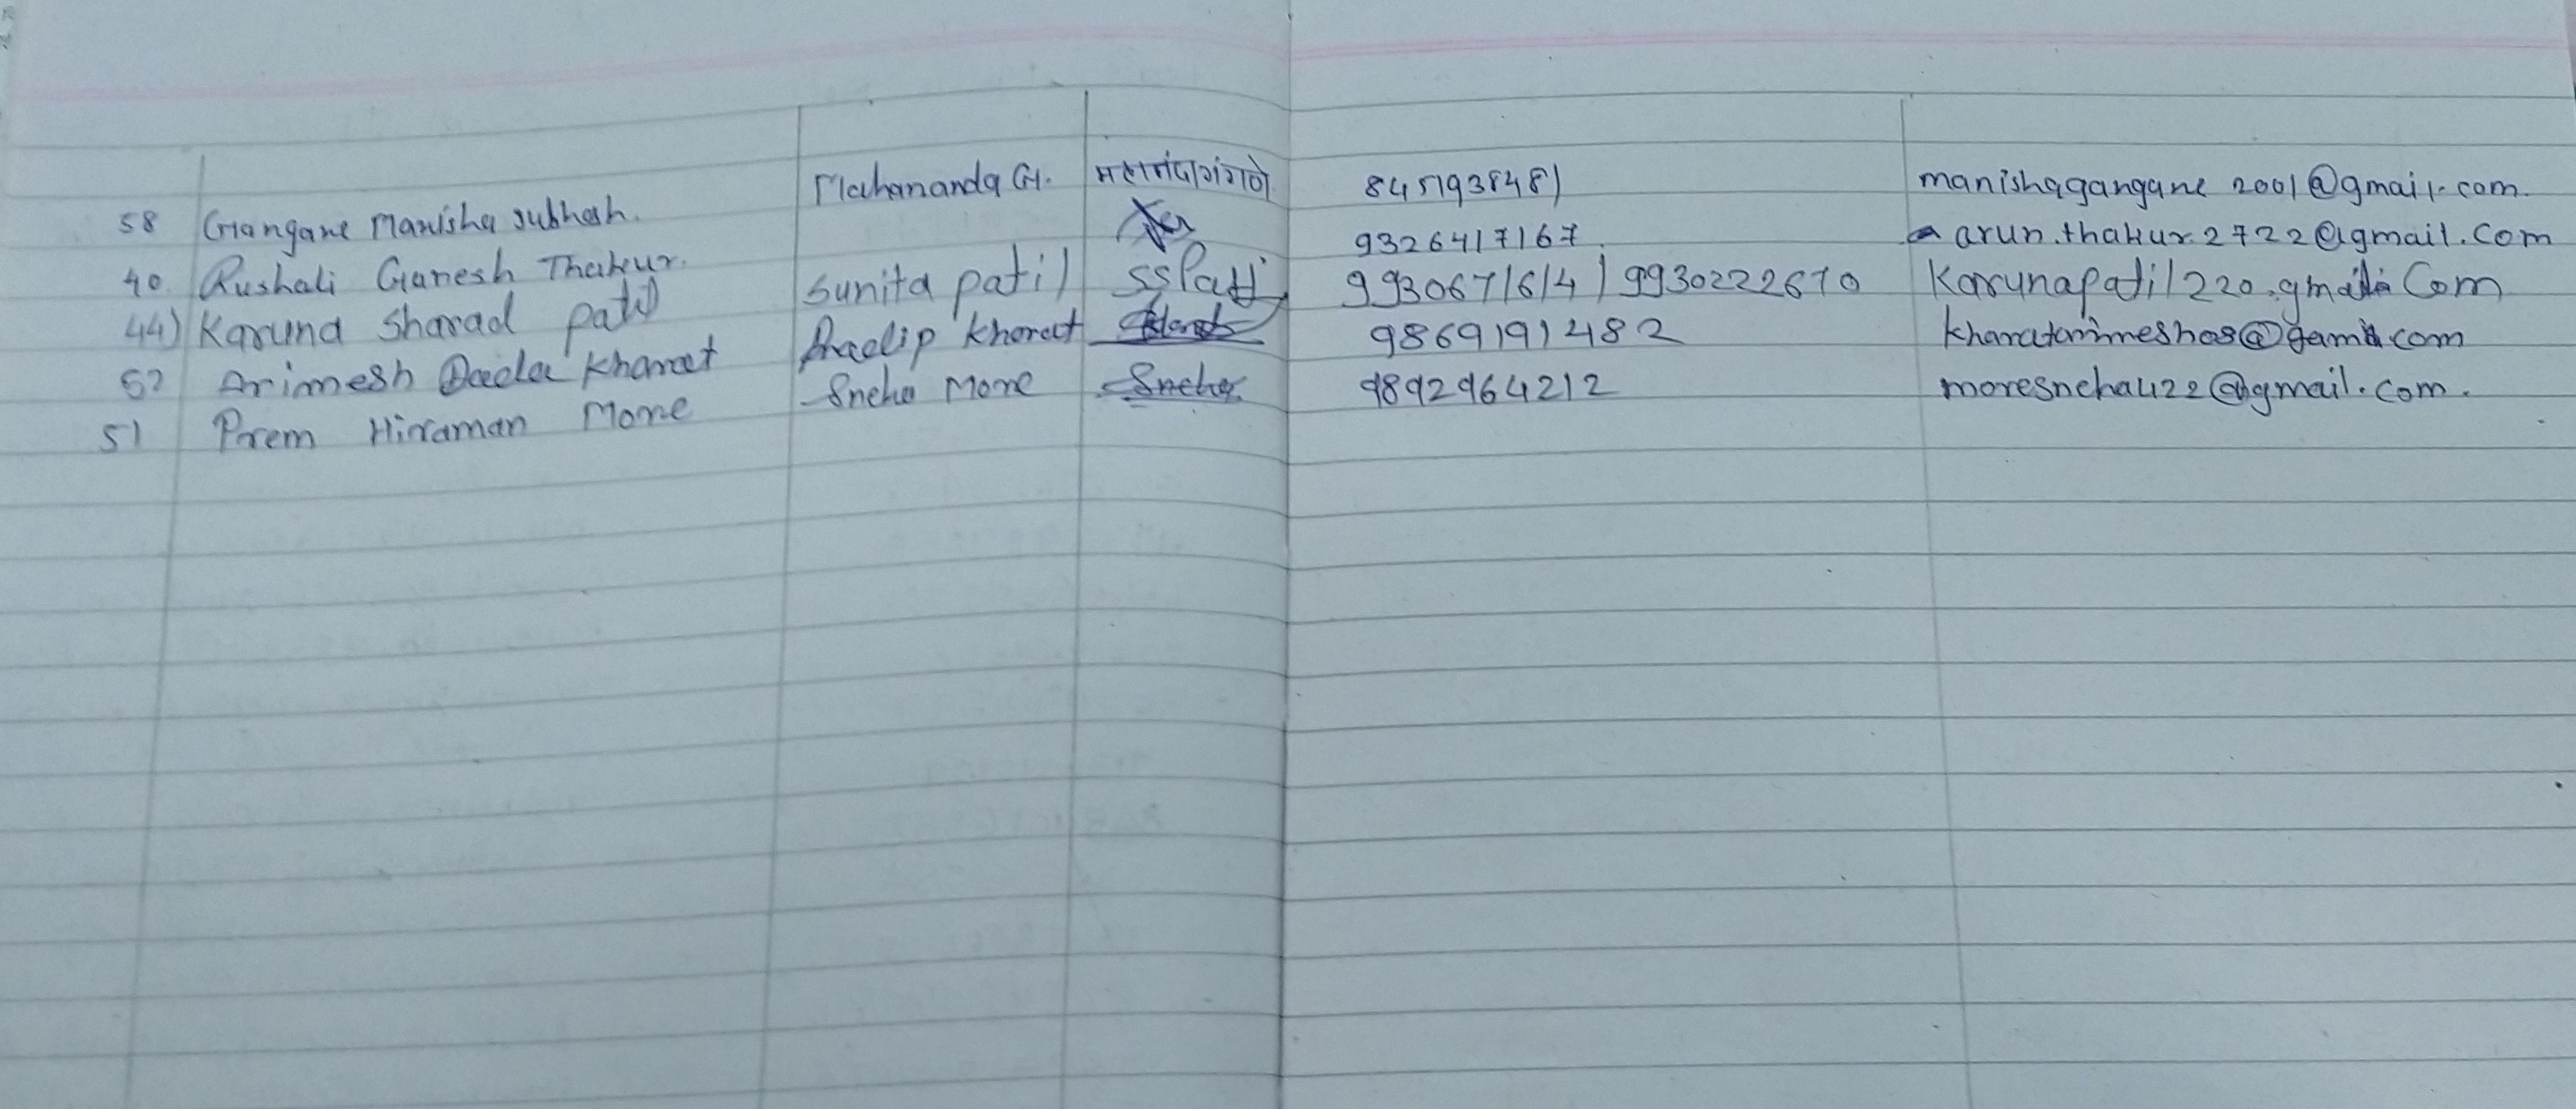 58 Gangane Manisha Subhash. Mahananda G. महानंदा गंगणे 8451938481 manishagangane 2001@gmail.com.
40 Rushali Ganesh Thakur. 9326417167. arun.thakur.2722@gmail.com
44) Karuna Sharad Patil Sunita patil SSPatil 9930671614 | 9930222670 Karunapatil220.gmail.Com
Arimesh Dada Kharat Pradip Kharat 9869191482
51 Prem Hiraman More Sneha More Sneha 9892964212 moresneha422@gmail.com.